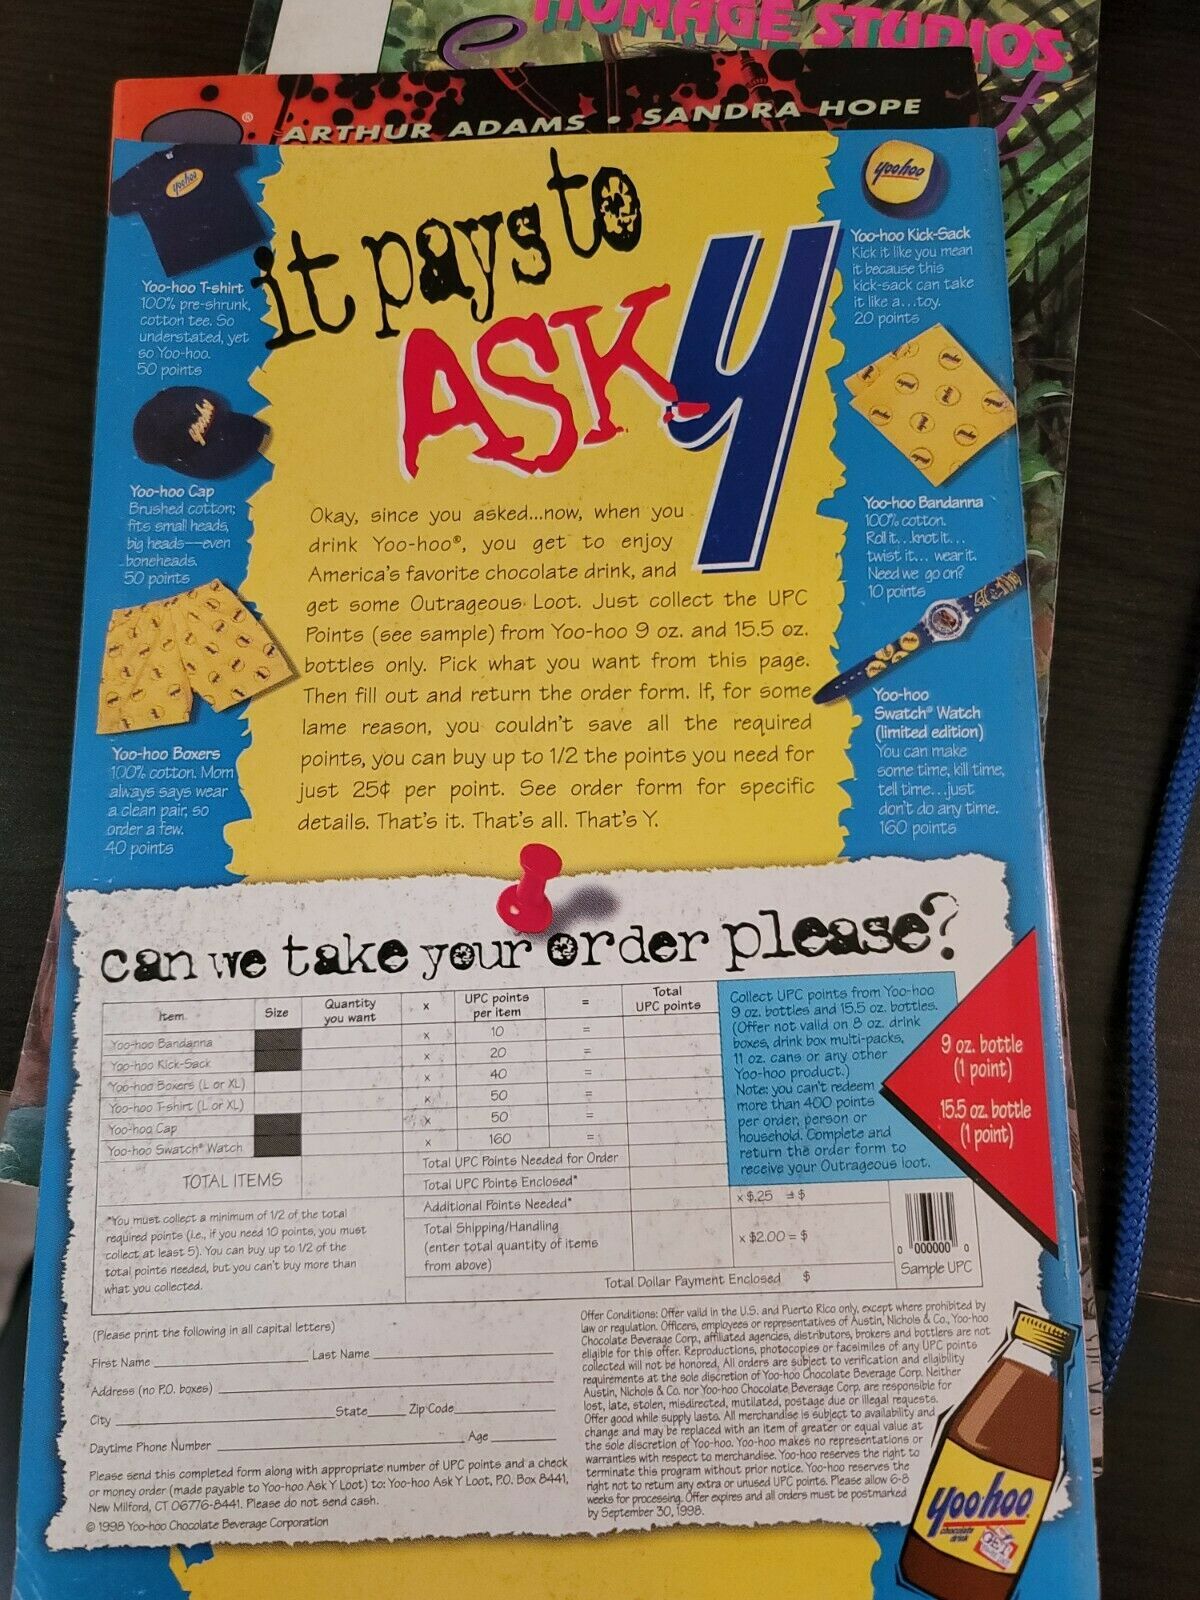 HOMAGE STUDIOS
® ARTHUR ADAMS • SANDRA HOPE
it pays to
ASK Y
yoohoo
Yoo-hoo T-shirt
100% pre-shrunk,
cotton tee. So
understated, yet
so Yoo-hoo.
50 points
yoohoo
Yoo-hoo Cap
Brushed cotton;
fits small heads,
big heads—even
boneheads.
50 points
Yoo-hoo Boxers
100% cotton. Mom
always says wear
a clean pair, so
order a few.
40 points
yoohoo
Yoo-hoo Kick-Sack
Kick it like you mean
it because this
kick-sack can take
it like a...toy.
20 points
Yoo-hoo Bandanna
100% cotton.
Roll it...knot it...
twist it... wear it.
Need we go on?
10 points
Yoo-hoo
Swatch® Watch
(limited edition)
You can make
some time, kill time,
tell time...just
don't do any time.
160 points
Okay, since you asked...now, when you
drink Yoo-hoo®, you get to enjoy
America's favorite chocolate drink, and
get some Outrageous Loot. Just collect the UPC
Points (see sample) from Yoo-hoo 9 oz. and 15.5 oz.
bottles only. Pick what you want from this page.
Then fill out and return the order form. If, for some
lame reason, you couldn't save all the required
points, you can buy up to 1/2 the points you need for
just 25¢ per point. See order form for specific
details. That's it. That's all. That's Y.
can we take your order please?
Item Size Quantity you want x UPC points per item = Total UPC points
Yoo-hoo Bandanna x 10 =
Yoo-hoo Kick-Sack x 20 =
Yoo-hoo Boxers (L or XL) x 40 =
Yoo-hoo T-shirt (L or XL) x 50 =
Yoo-hoo Cap x 50 =
Yoo-hoo Swatch® Watch x 160 =
TOTAL ITEMS
Total UPC Points Needed for Order
Total UPC Points Enclosed*
Additional Points Needed* x $.25 = $
Total Shipping/Handling
(enter total quantity of items
from above) x $2.00 = $
Total Dollar Payment Enclosed $
*You must collect a minimum of 1/2 of the total
required points (i.e., if you need 10 points, you must
collect at least 5). You can buy up to 1/2 of the
total points needed, but you can't buy more than
what you collected.
Collect UPC points from Yoo-hoo
9 oz. bottles and 15.5 oz. bottles.
(Offer not valid on 8 oz. drink
boxes, drink box multi-packs,
11 oz. cans or any other
Yoo-hoo product.)
Note: you can't redeem
more than 400 points
per order, person or
household. Complete and
return the order form to
receive your Outrageous loot.
9 oz. bottle
(1 point)
15.5 oz. bottle
(1 point)
0 000000 0
Sample UPC
(Please print the following in all capital letters)
First Name Last Name
Address (no P.O. boxes)
City State Zip Code
Daytime Phone Number Age
Please send this completed form along with appropriate number of UPC points and a check
or money order (made payable to Yoo-hoo Ask Y Loot) to: Yoo-hoo Ask Y Loot, P.O. Box 8441,
New Milford, CT 06776-8441. Please do not send cash.
© 1998 Yoo-hoo Chocolate Beverage Corporation
Offer Conditions: Offer valid in the U.S. and Puerto Rico only, except where prohibited by
law or regulation. Officers, employees or representatives of Austin, Nichols & Co., Yoo-hoo
Chocolate Beverage Corp., affiliated agencies, distributors, brokers and bottlers are not
eligible for this offer. Reproductions, photocopies or facsimiles of any UPC points
collected will not be honored. All orders are subject to verification and eligibility
requirements at the sole discretion of Yoo-hoo Chocolate Beverage Corp. Neither
Austin, Nichols & Co. nor Yoo-hoo Chocolate Beverage Corp. are responsible for
lost, late, stolen, misdirected, mutilated, postage due or illegal requests.
Offer good while supply lasts. All merchandise is subject to availability and
change and may be replaced with an item of greater or equal value at
the sole discretion of Yoo-hoo. Yoo-hoo makes no representations or
warranties with respect to merchandise. Yoo-hoo reserves the right to
terminate this program without prior notice. Yoo-hoo reserves the
right not to return any extra or unused UPC points. Please allow 6-8
weeks for processing. Offer expires and all orders must be postmarked
by September 30, 1998.
yoohoo
chocolate
drink